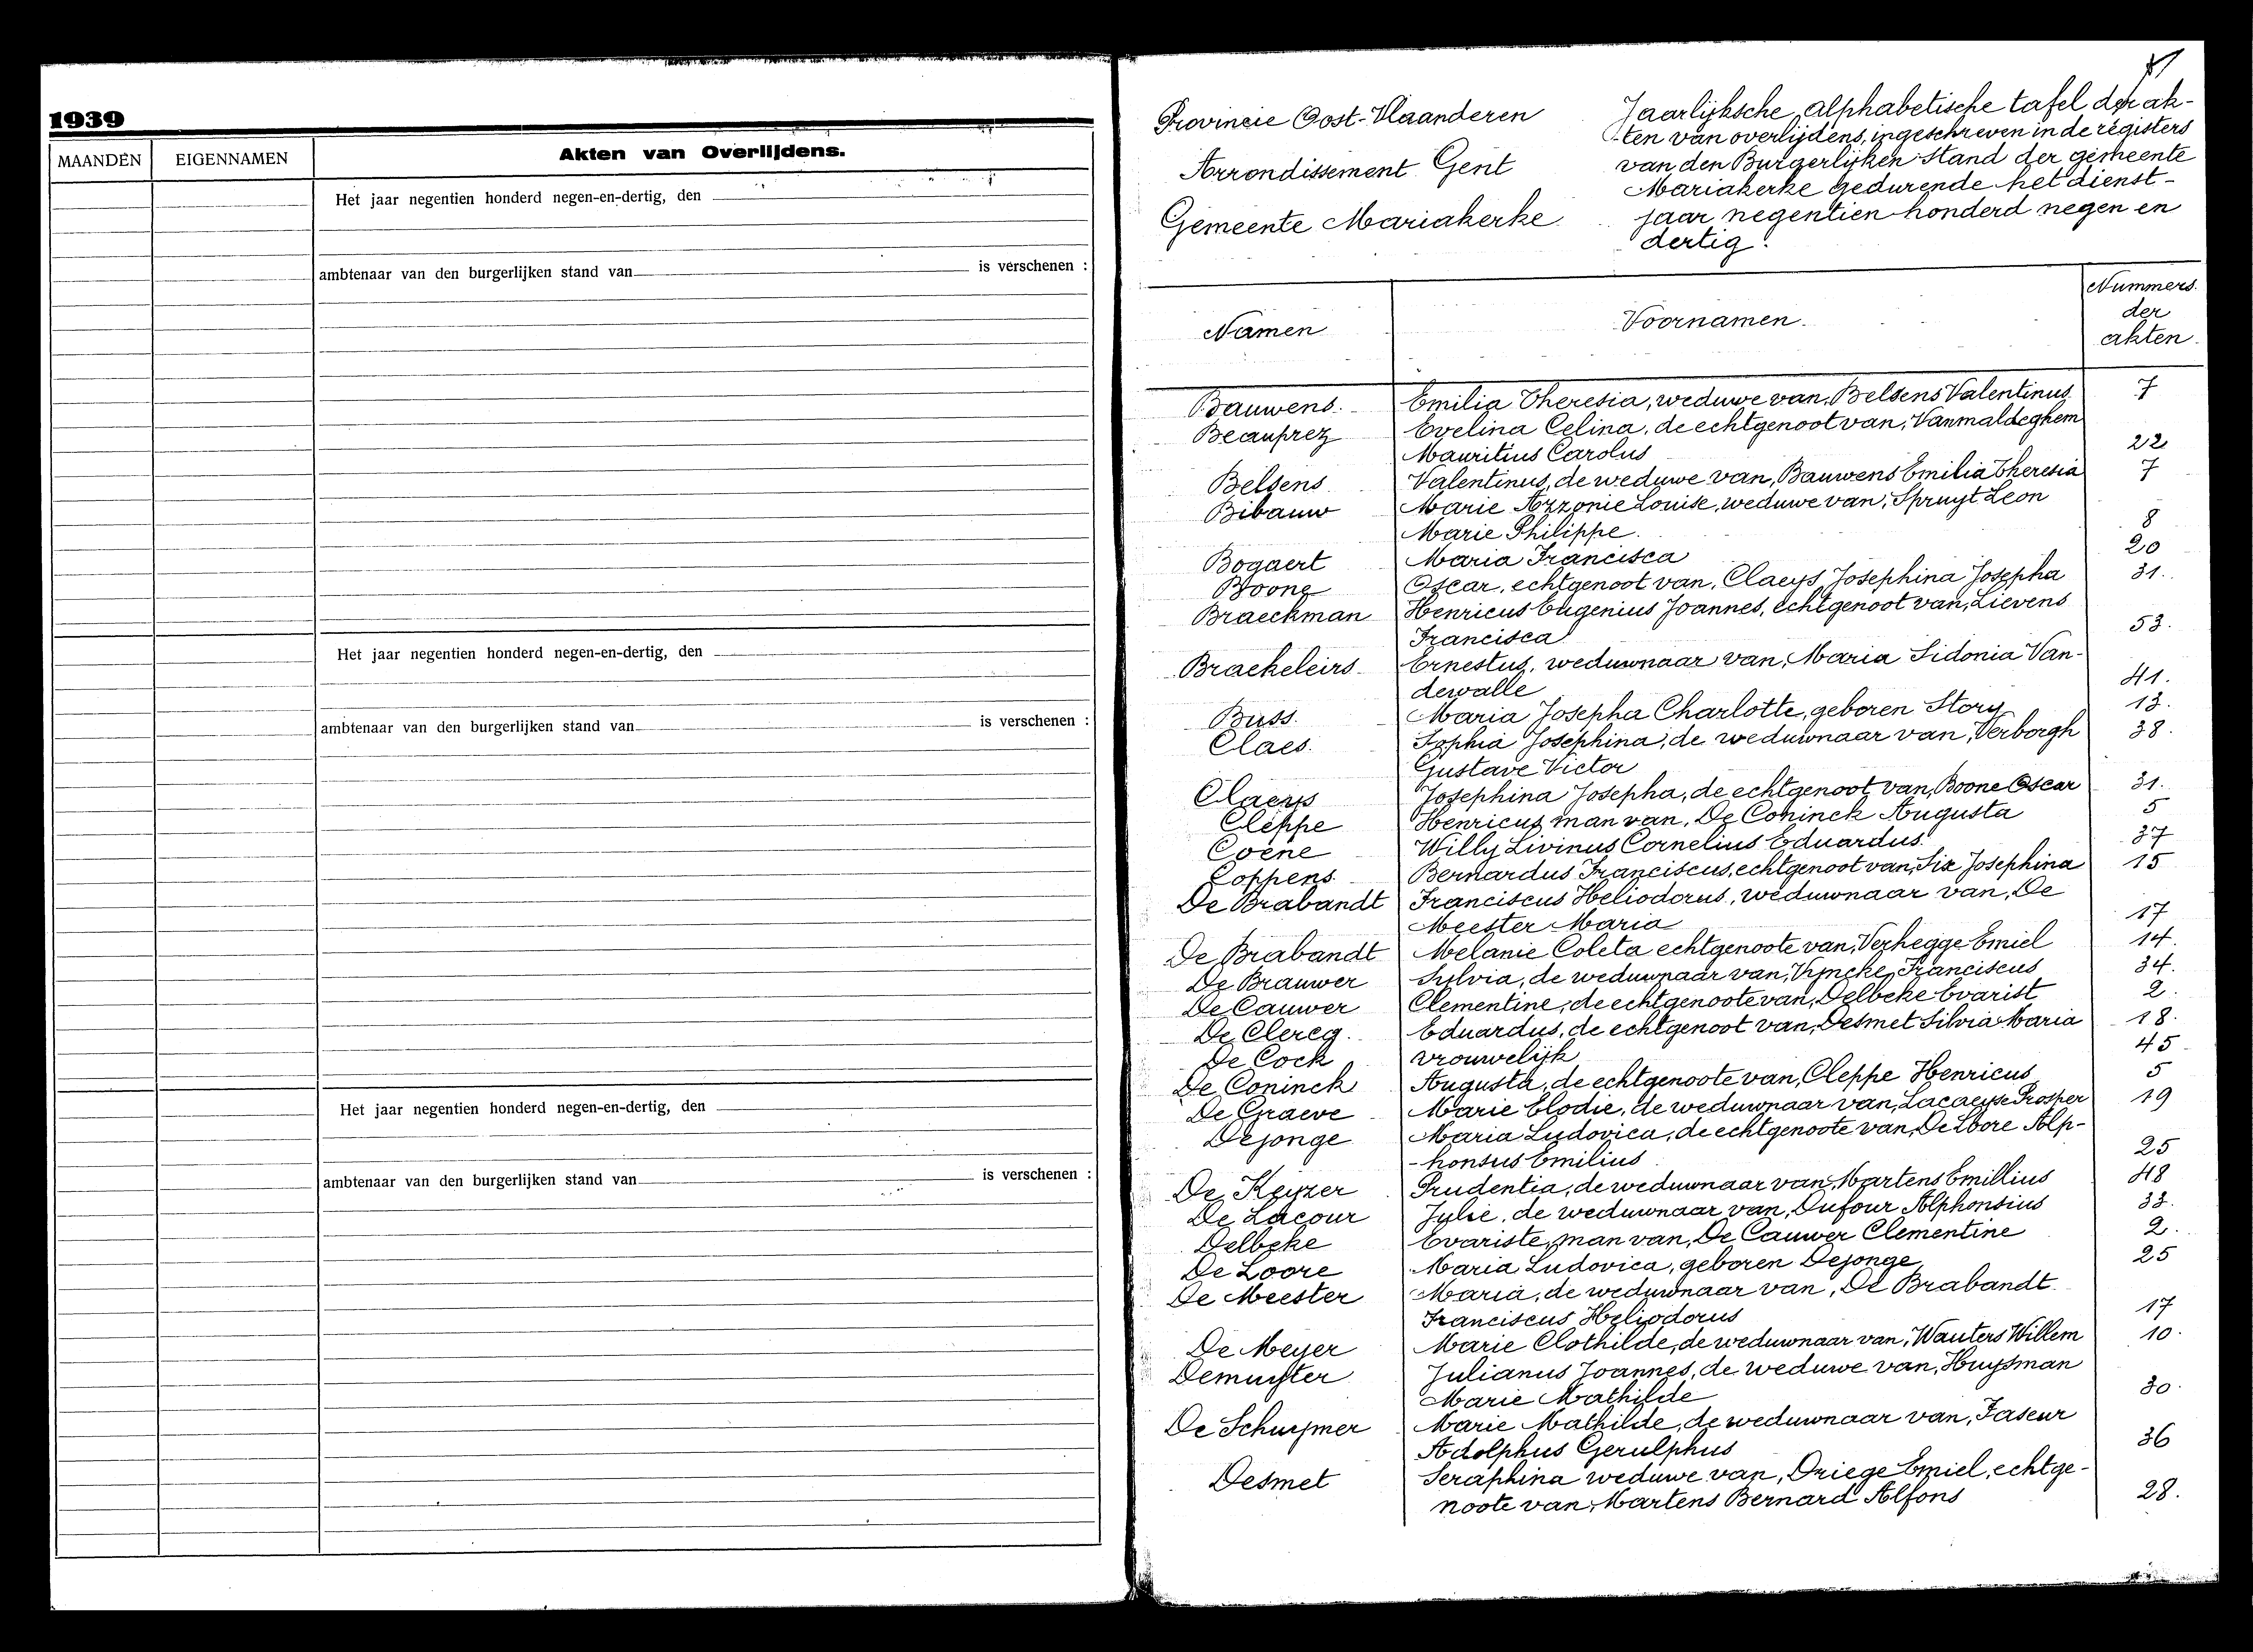 1939
MAANDEN EIGENNAMEN Akten van Overlijdens.
Het jaar negentien honderd negen-en-dertig, den
ambtenaar van den burgerlijken stand van is verschenen :
Het jaar negentien honderd negen-en-dertig, den
ambtenaar van den burgerlijken stand van is verschenen :
Het jaar negentien honderd negen-en-dertig, den
ambtenaar van den burgerlijken stand van is verschenen :
Provincie Oost-Vlaanderen
Arrondissement Gent
Gemeente Mariakerke
Jaarlijksche alphabetische tafel der ak-
ten van overlijdens, ingeschreven in de registers
van den Burgerlijken stand der gemeente
Mariakerke gedurende het dienst-
jaar negentien honderd negen en
dertig.
Namen Voornamen. Nummers
der
akten.
Bauwens. Emilia Theresia, weduwe van, Belsens Valentinus 7
Beauprez Evelina Celina, de echtgenoot van, Vanmaldeghem
Mauritius Carolus 22
Belsens Valentinus, de weduwe van, Bauwens Emilia Theresia 7
Bibauw Marie Azzonie Louise, weduwe van, Spruyt Leon
Marie Philippe. 8
Bogaert Maria Francisca 20
Boone Oscar, echtgenoot van, Claeys Josephina Josepha 31.
Braeckman Henricus Eugenius Joannes, echtgenoot van, Lievens
Francisca 53.
Braekeleirs Ernestus, weduwnaar van, Maria Sidonia Van-
dewalle 41.
Buss. Maria Josepha Charlotte, geboren Story 13.
Claes. Sophia Josephina, de weduwnaar van, Verborgh 38.
Gustave Victor
Claeys Josephina Josepha, de echtgenoot van, Boone Oscar 31.
Cleppe Henricus, man van, De Coninck Augusta 5
Coene Willy Livinus Cornelius Eduardus 37
Coppens. Bernardus Franciscus, echtgenoot van, Six Josephina 15
De Brabandt Franciscus Heliodorus, weduwnaar van, De
Meester Maria 17
De Brabandt Melanie Coleta echtgenoote van, Verhegge Emiel 14.
De Brauwer Sylvia, de weduwnaar van, Vyncke, Franciscus 34.
De Cauwer Clementine, de echtgenoote van, Delbeke Evarist 2.
De Clercq. Eduardus, de echtgenoot van, Desmet Silvia Maria 18.
De Cock vrouwelijk 45
De Coninck Augusta, de echtgenoote van, Cleppe Henricus 5
De Graeve Marie Elodie, de weduwnaar van, Lacaeyse Prosper 19
Dejonge Maria Ludovica, de echtgenoote van, De Loore Alp-
-honsus Emilius 25
De Keyzer Prudentia, de weduwnaar van, Martens Emillius 48
De Lacour Julie, de weduwnaar van, Dufour Alphonsius 33.
Delbeke Evariste, man van, De Cauwer Clementine 2.
De Loore Maria Ludovica, geboren Dejonge 25
De Meester Maria, de weduwnaar van, De Brabandt
Franciscus Heliodorus 17
De Meyer Marie Clothilde, de weduwnaar van, Wauters Willem 10.
Demuyter Julianus Joannes, de weduwe van, Huysman
Marie Mathilde 30.
De Schuymer Marie Mathilde, de weduwnaar van, Faseur
Adolphus Gerulphus 36
Desmet Seraphina weduwe van, Driege Emiel, echtge-
noote van, Martens Bernard Alfons 28.